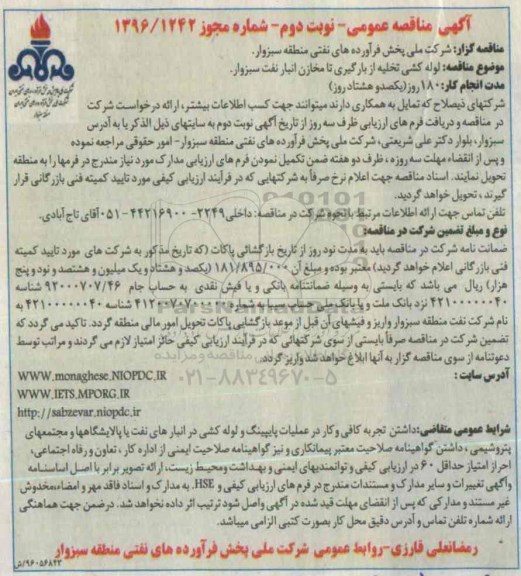 آگهی مناقصه عمومی- نوبت دوم- شماره مجوز ۱۳۹۶/۱۲۴۲
مناقصه گزار: شرکت ملی پخش فرآورده های نفتی منطقه سبزوار.
موضوع مناقصه: لوله کشی تخلیه از بارگیری تا مخازن انبار نفت سبزوار.
مدت انجام کار: ۱۸۰ روز(یکصدو هشتاد روز)
شرکتهای ذیصلاح که تمایل به همکاری دارند میتوانند جهت کسب اطلاعات بیشتر، ارائه درخواست شرکت
در مناقصه و دریافت فرم های ارزیابی ظرف سه روز از تاریخ آگهی نوبت دوم به سایتهای ذیل الذکر یا به آدرس
سبزوار، بلوار دکتر علی شریعتی، شرکت ملی پخش فرآورده های نفتی منطقه سبزوار- امور حقوقی مراجعه نموده
و پس از انقضاء مهلت سه روزه ، ظرف دو هفته ضمن تکمیل نمودن فرم های ارزیابی مدارک مورد نیاز مندرج در فرمها را به منطقه
تحویل نمایند. اسناد مناقصه جهت اعلام نرخ صرفاً به شرکتهایی که در فرآیند ارزیابی کیفی مورد تایید کمیته فنی بازرگانی قرار
گیرند ، تحویل خواهد گردید.
تلفن تماس جهت ارائه اطلاعات مرتبط با نحوه شرکت در مناقصه: داخلی ۲۲۴۹- ۴۴۲۱۶۹۰۰-۰۵۱ آقای تاج آبادی.
نوع و مبلغ تضمین شرکت در مناقصه:
ضمانت نامه شرکت در مناقصه باید به مدت نود روز از تاریخ بازگشائی پاکات (که تاریخ مذکور به شرکت های مورد تایید کمیته
فنی بازرگانی اعلام خواهد گردید) معتبر بوده و مبلغ آن ۱۸۱/۸۹۵/۰۰۰ (یکصد و هشتاد و یک میلیون و هشتصد و نود و پنج
هزار) ریال می باشد که بایستی به وسیله ضمانتنامه بانکی و یا فیش نقدی به حساب جام ۹۲۰۰۰۷۰۷/۴۶ شناسه
نزد بانک ملت و یا بانک ملی حساب سیبا به شماره شناسه به
نام شرکت نفت منطقه سبزوار واریز و فیشهای آن قبل از موعد بازگشایی پاکات تحویل امور مالی منطقه گردد. تاکید می گردد که
تضمین شرکت در مناقصه صرفاً بایستی از سوی شرکتهائی که در فرآیند ارزیابی کیفی حائز امتیاز لازم می گردند و مراتب توسط
دعوتنامه از سوی مناقصه گزار به آنها ابلاغ خواهد شد واریز گردد.
آدرس سایت :
WWW.monaghese.NIOPDC.IR
WWW.IETS.MPORG.IR
http://sabzevar.niopdc.ir
۰۲۱-۸۸۳۴۹۶۷۰-۵
شرایط عمومی متقاضی: داشتن تجربه کافی و کار در عملیات پایپینگ و لوله کشی در انبار های نفت یا پالایشگاهها و مجتمعهای
پتروشیمی ، داشتن گواهینامه صلاحیت معتبر پیمانکاری و نیز گواهینامه صلاحیت ایمنی از اداره کار ، تعاون و رفاه اجتماعی،
احراز امتیاز حداقل ۶۰ در ارزیابی کیفی و توانمندیهای ایمنی و بهداشت ومحیط زیست، ارائه تصویر برابر با اصل اساسنامه
وآگهی تغییرات و سایر مدارک و مستندات مندرج در فرم های ارزیابی کیفی و HSE. به مدارک و اسناد فاقد مهر و امضاء،مخدوش
غیر مستند و مدارکی که پس از انقضای مهلت قید شده در آگهی واصل شود ترتیب اثر داده نخواهد شد. درضمن جهت هماهنگی
ارائه شماره تلفن تماس و آدرس دقیق محل کار بصورت کتبی الزامی میباشد.
رمضانعلی قارزی-روابط عمومی شرکت ملی پخش فرآورده های نفتی منطقه سبزوار